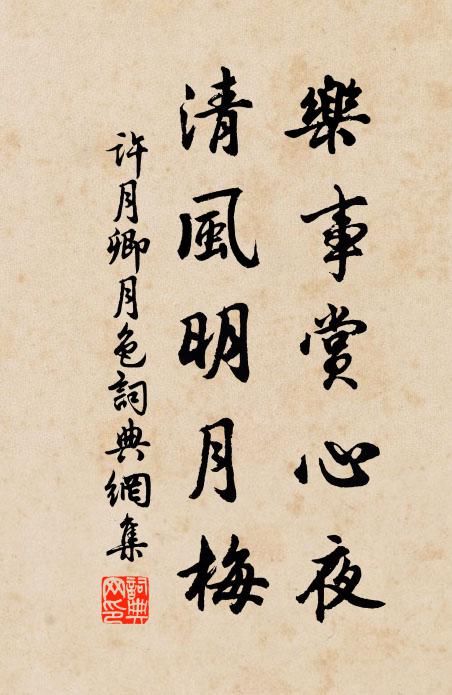 樂事賞心夜
清風明月梅
許月卿月色詞典網集
詞典